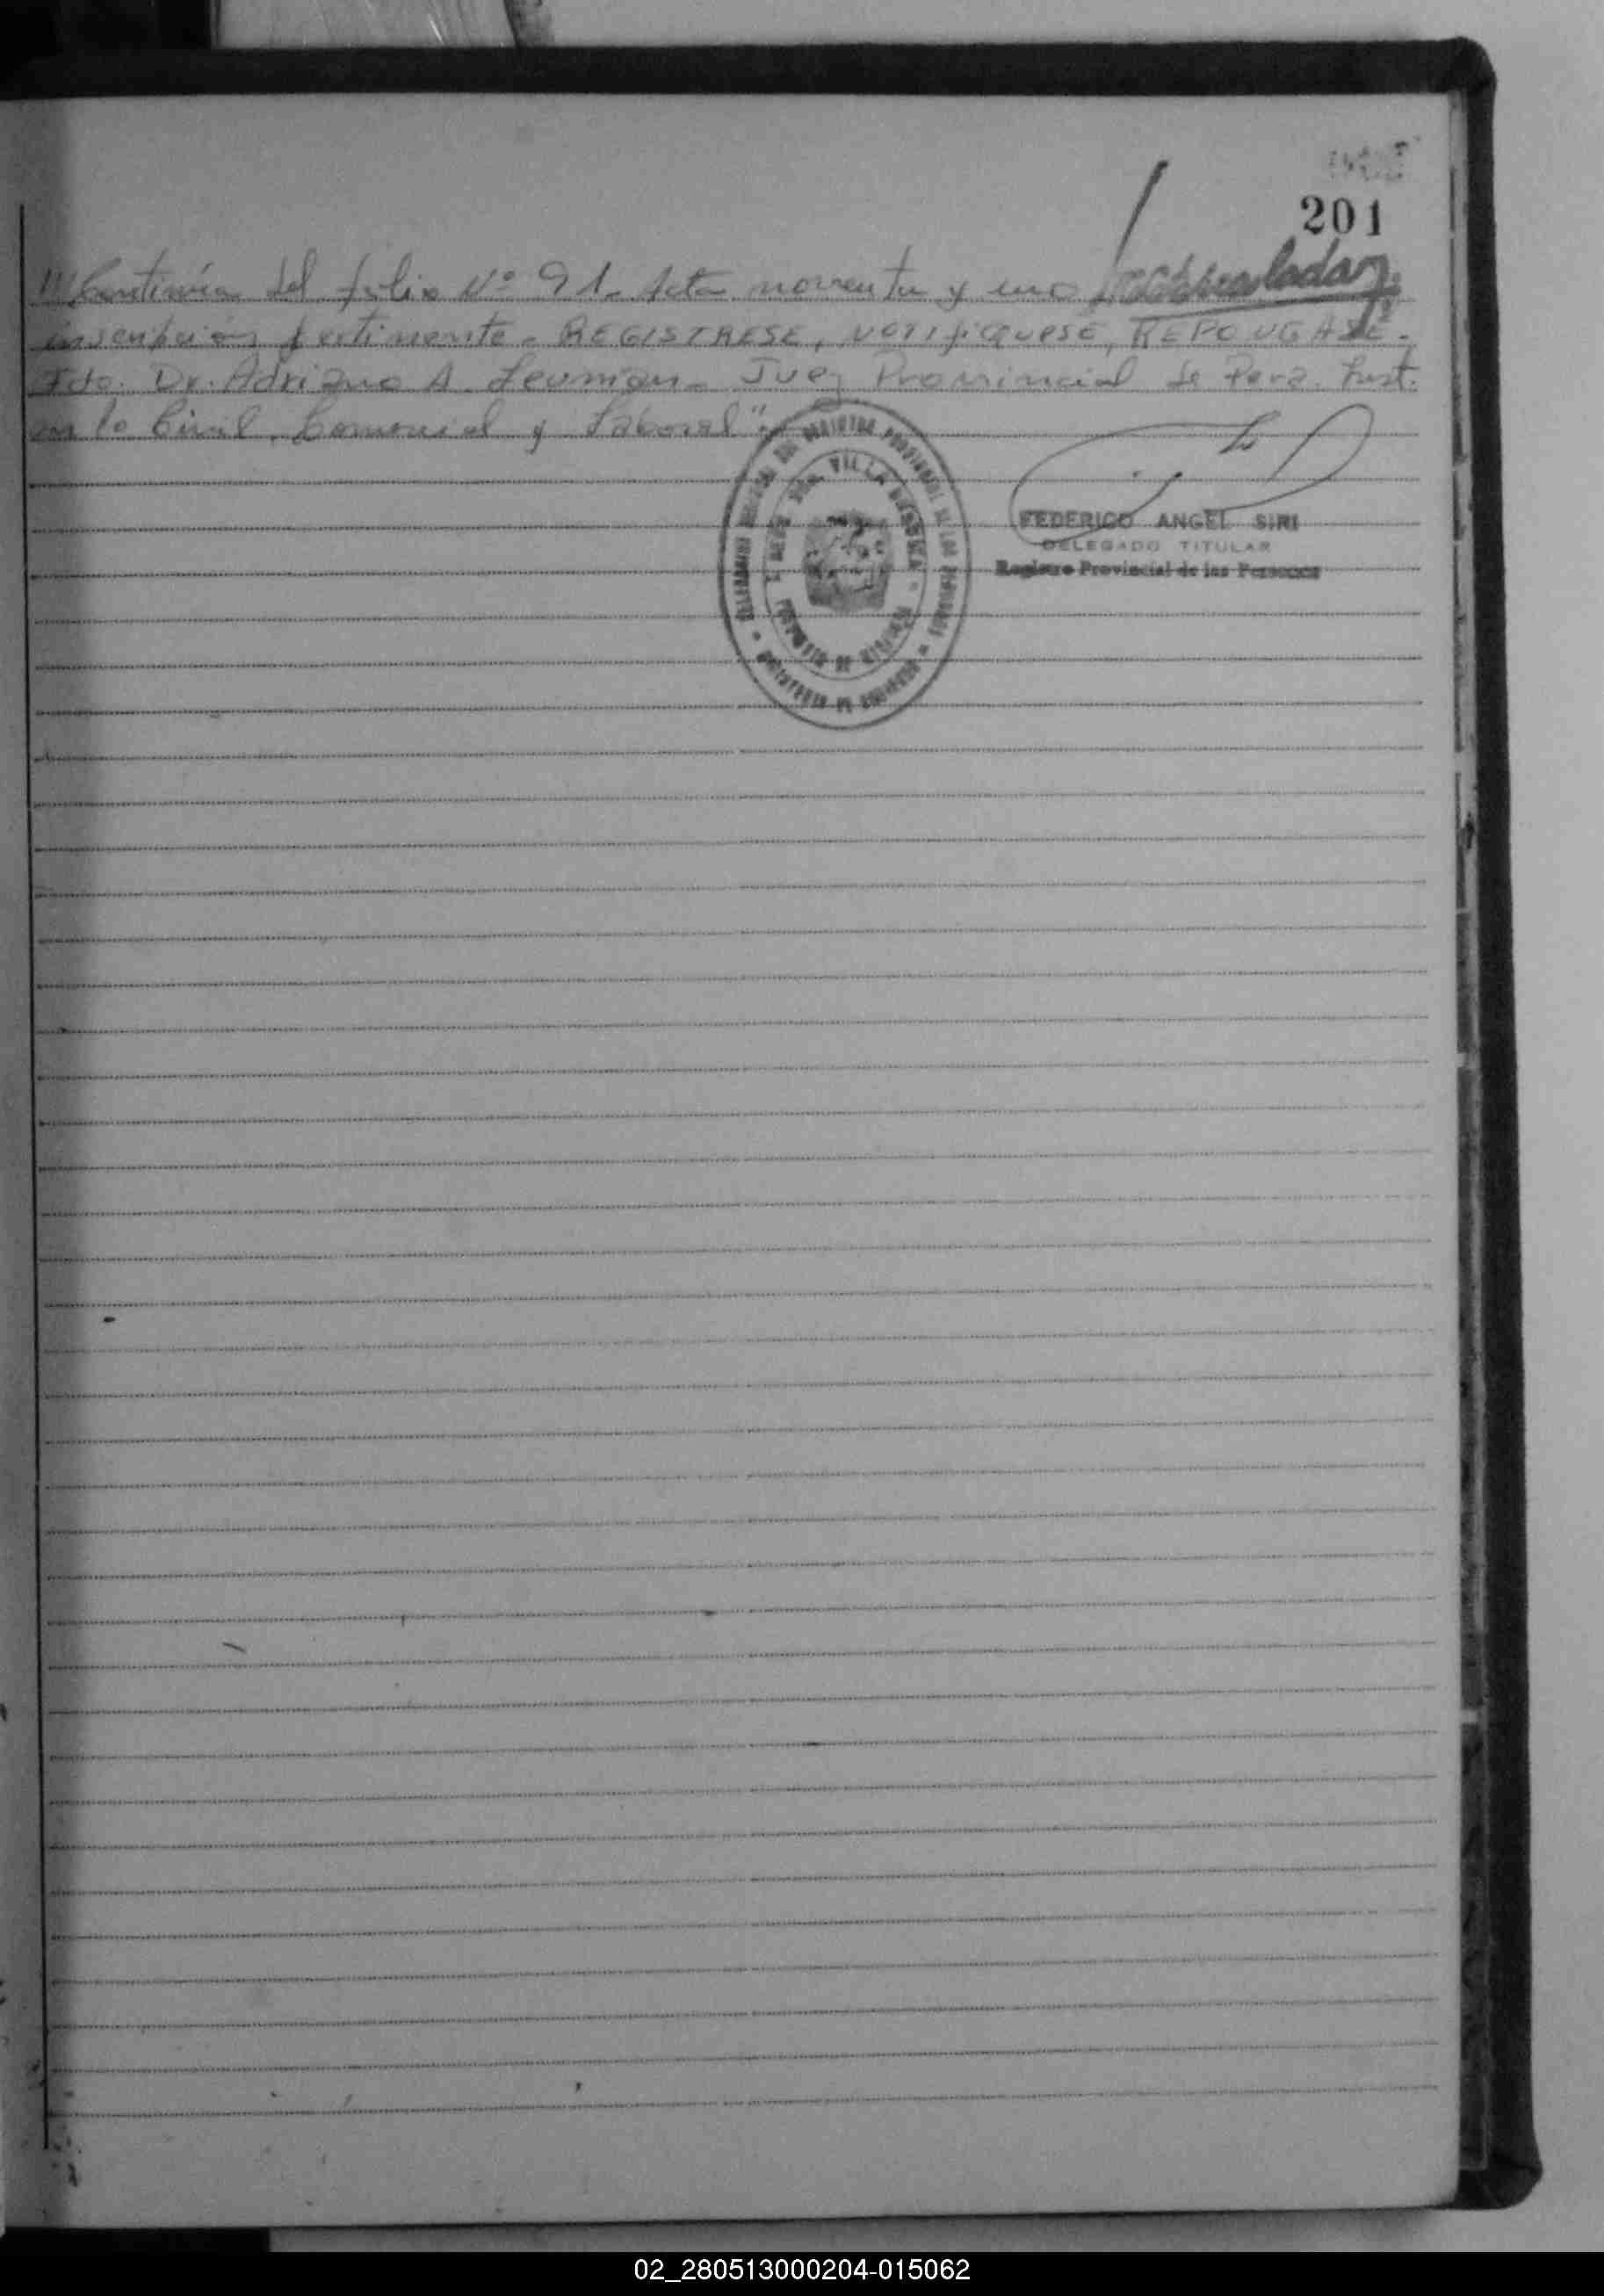 201
Continúa del folio Nº 91. Acta noventa y uno
inscripción pertinente. REGISTRESE, NOTIFIQUESE, REPONGASE.
Fdo. Dr. Adriano A. Juez Provincial de Pera. Inst.
en lo Civil, Comercial y Laboral".
VILLA
FEDERICO ANGEL SIRI
DELEGADO TITULAR
Registro Provincial de las Personas
02_280513000204-015062